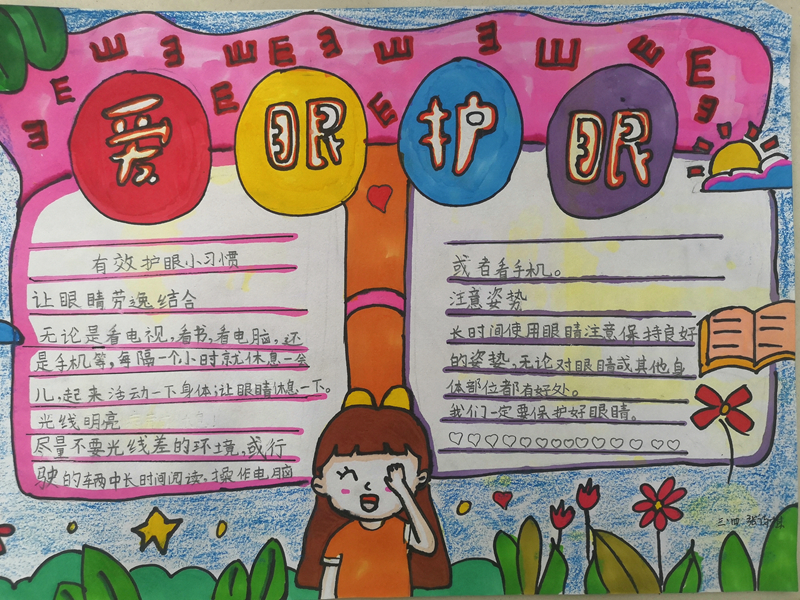 爱眼护眼
有效护眼小习惯
让眼睛劳逸结合
无论是看电视,看书,看电脑,还
是手机等,每隔一个小时就休息一会
儿.起来活动一下身体,让眼睛休息一下。
光线明亮
尽量不要光线差的环境,或行
驶的车辆中长时间阅读,操作电脑
或者看手机。
注意姿势
长时间使用眼睛注意保持良好
的姿势,无论对眼睛或其他身
体部位都有好处。
我们一定要保护好眼睛。